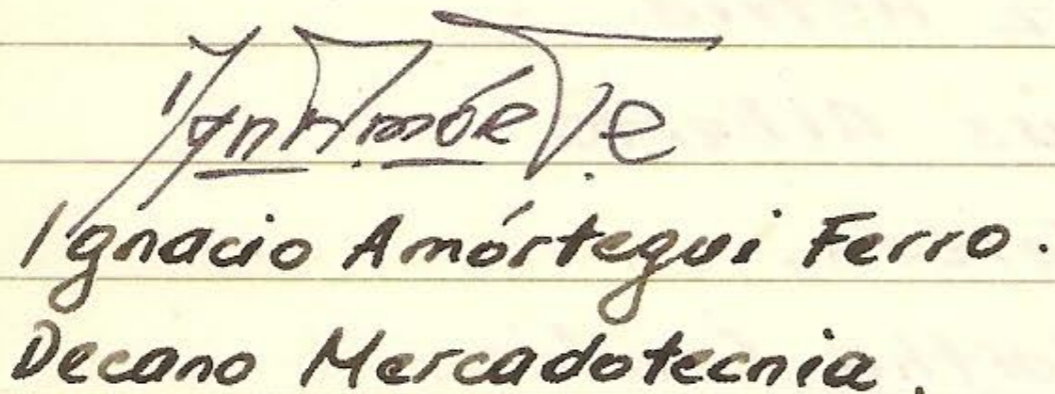 Ignacio Amórtegui Ferro.
Decano Mercadotecnia.